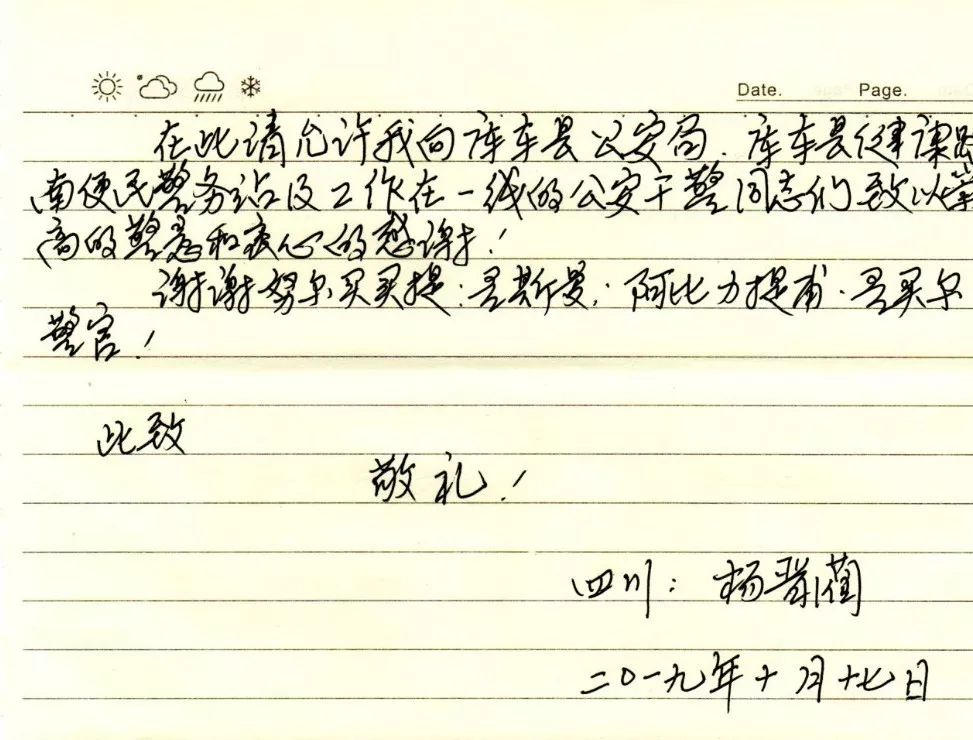 Date. Page.
在此请允许我向库车县公安局、库车县健康路
南便民警务站及工作在一线的公安干警同志们致以崇
高的敬意和衷心的感谢！
谢谢努尔买买提·吾斯曼，阿比力提甫·吾买尔
警官！
此致
敬礼！
四川：杨
二〇一九年十月十七日